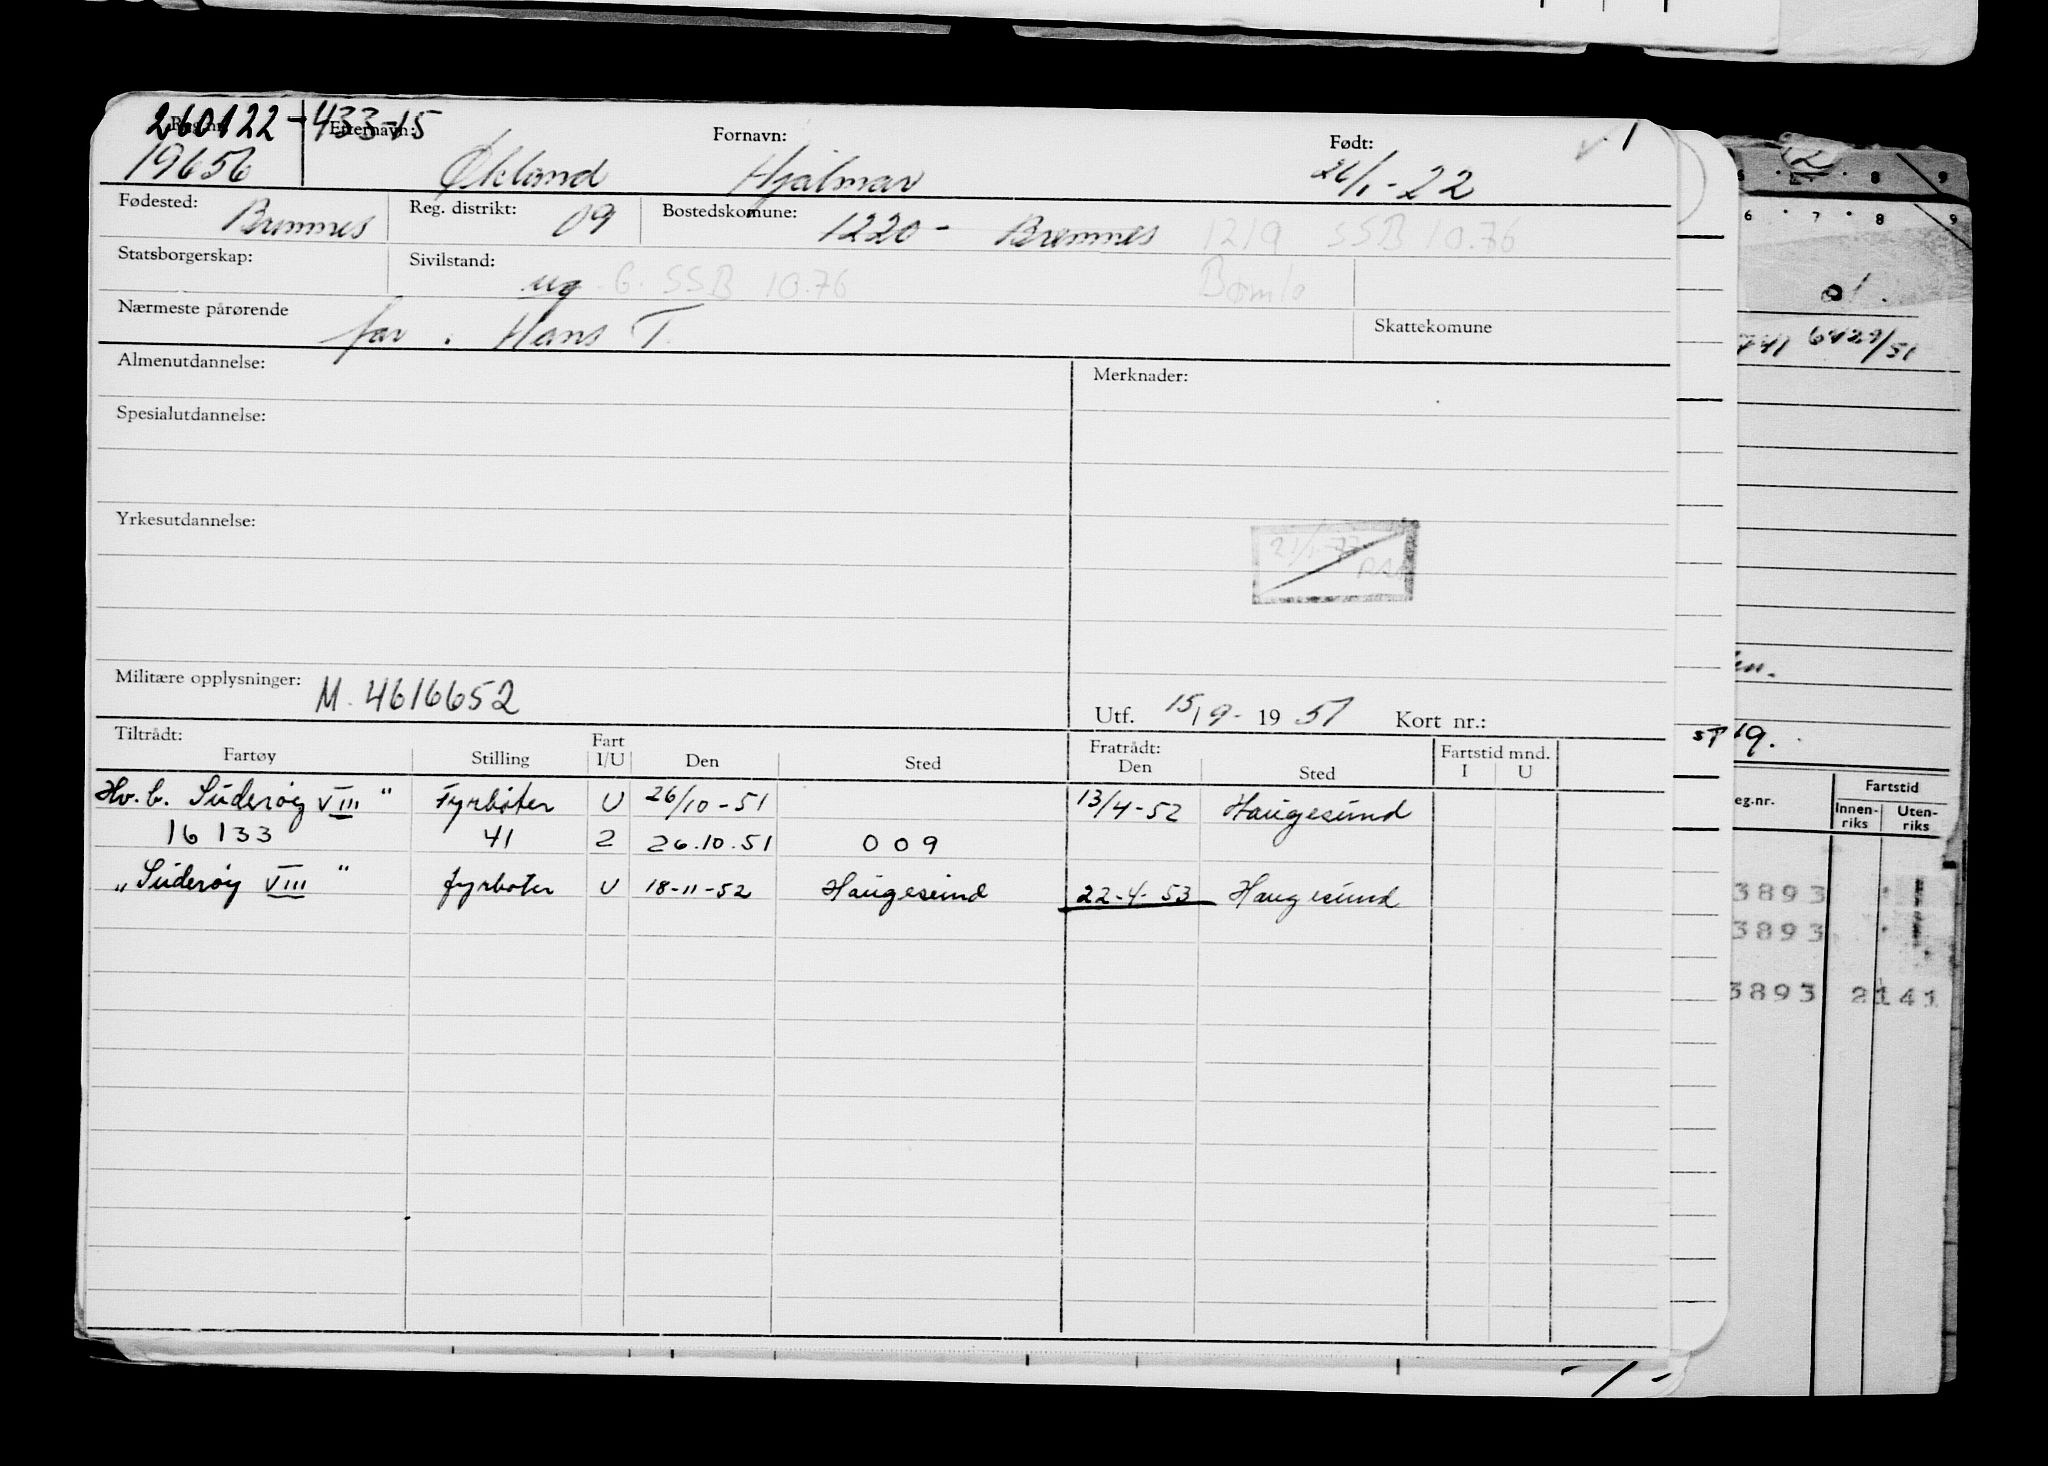 260122-433-15
Reg.nr. Etternavn: Fornavn: Født:
19656 Økland Hjalmar 26/1-22 1
Fødested: Bremnes Reg. distrikt: 09 Bostedskomune: 1220 - Bremnes 1219 SSB 10.76
Statsborgerskap: Sivilstand: ug G. SSB 10.76 Bømlo
Nærmeste pårørende far. Hans T. Skattekomune
Almenutdannelse: Merknader:
Spesialutdannelse:
Yrkesutdannelse:
Militære opplysninger: M. 4616652
Utf. 15/9- 19 51 Kort nr.:
Tiltrådt: Fratrådt: Fartstid mnd.
Fartøy Stilling Fart I/U Den Sted Den Sted I U
Hv.b. Suderøy VIII" Fyrbøter U 26/10-51 13/4-52 Haugesund
16133 41 2 26.10.51 009
"Suderøy VIII" fyrbøter U 18-11-52 Haugesund 22-4-53 Haugesund
- 1 -
6 7 8 9
01.
6429/51
eg.nr. Fartstid
Innen-riks Uten-riks
3893
3893
3893 2141